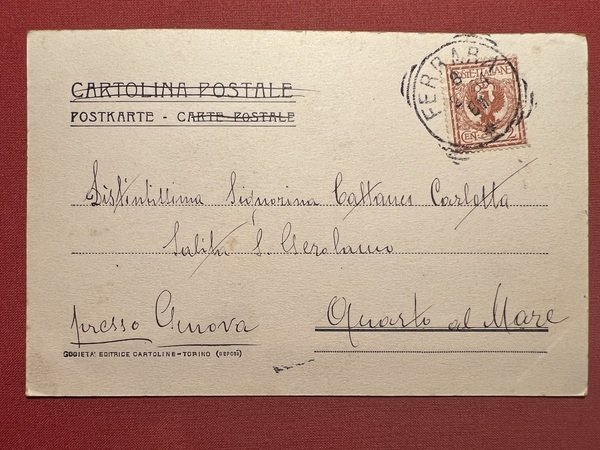 CARTOLINA POSTALE
POSTKARTE - CARTE POSTALE
FERRARA
POSTE ITALIANE
CEN. 2
Distintissima Signorina Cattaneo Carletta
Salita S. Gerolamo
presso Genova
Quarto al Mare
SOCIETA' EDITRICE CARTOLINE-TORINO (DEPOSÉ)